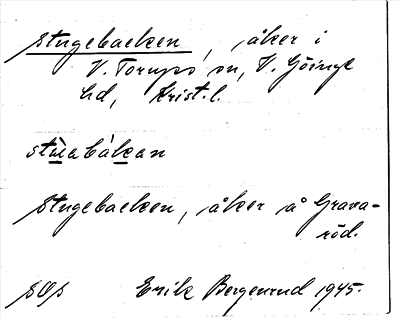 Stugebacken, åker i
V. Torups sn, V. Göinge
hd, Krist. l.
stùabákan
Stugebacken, åker å Grava-
röd.
SOs Erik Bergenrud 1945.